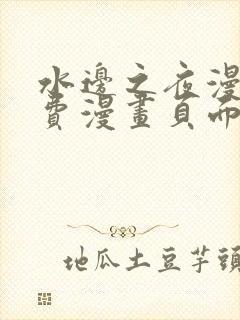 水邊之夜漫
費漫畫頁而
地瓜土豆芋頭